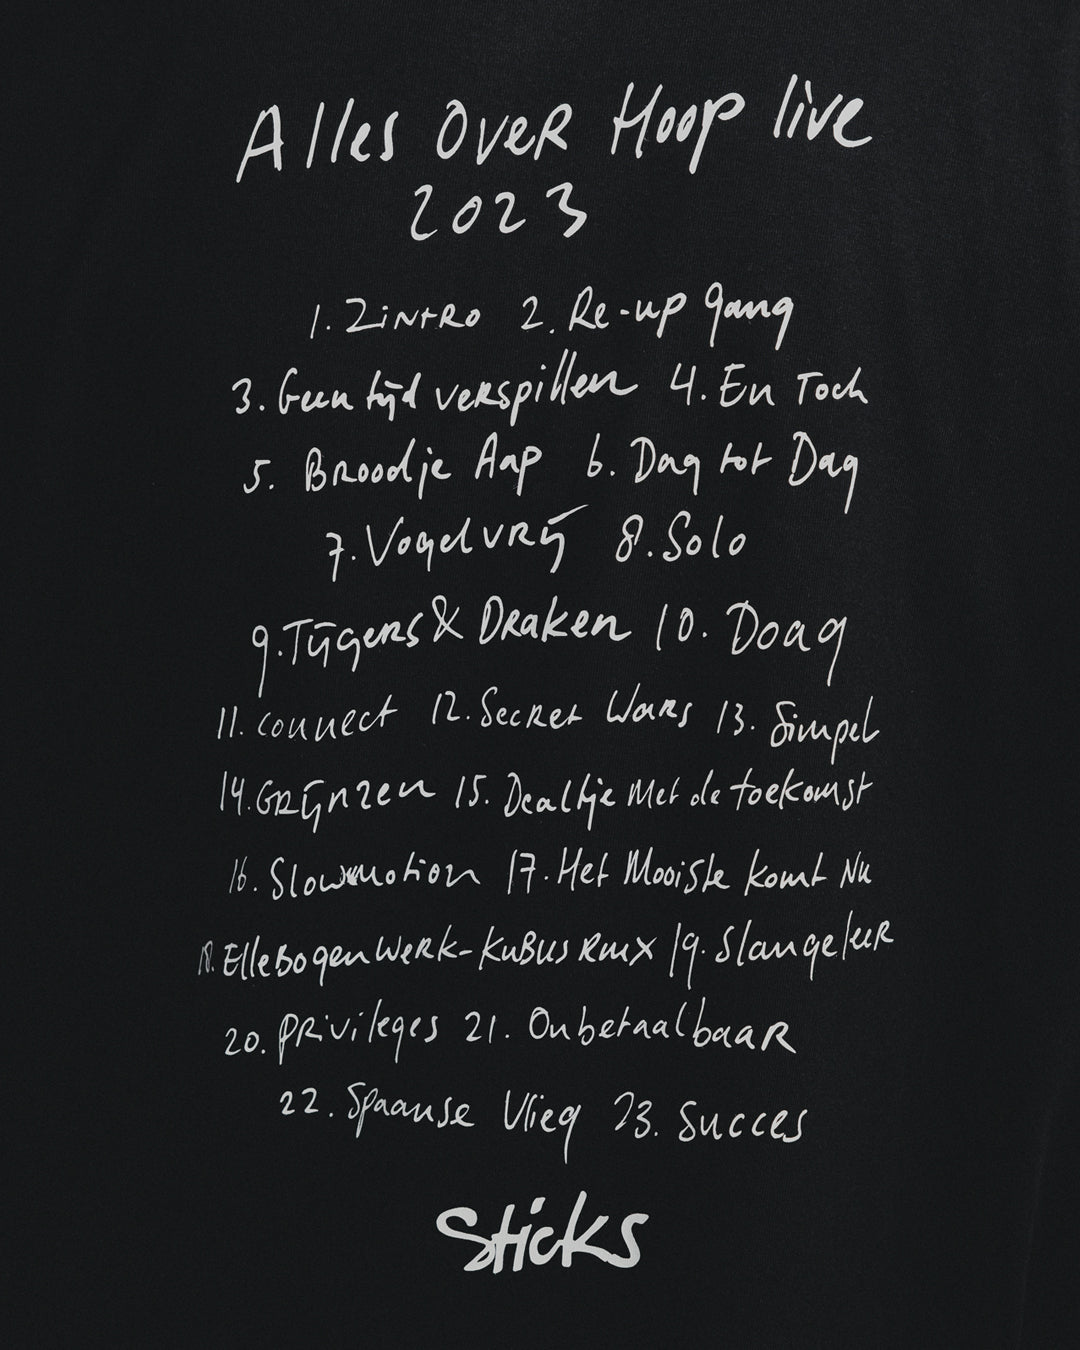 Alles Over Hoop live
2023
1. Zintro 2. Re-up gang
3. Geen tijd verspillen 4. En Toch
5. Broodje Aap 6. Dag tot Dag
7. Vogelvrij 8. Solo
9. Tijgers & Draken 10. Doag
11. connect 12. Secret Wars 13. Simpel
14. Grijnzen 15. Dealtje Met de toekomst
16. Slowmotion 17. Het Mooiste komt Nu
18. Ellebogenwerk-Kubus RMX 19. Slangeleer
20. Privileges 21. Onbetaalbaar
22. Spaanse Vlieg 23. Succes
Sticks